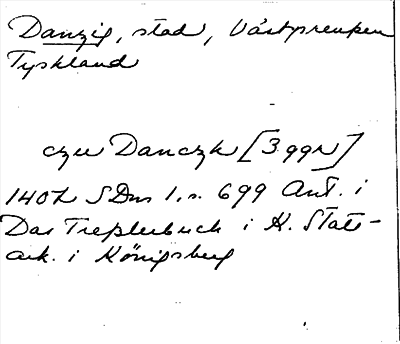 Danzig, stad, Västpreussen
Tyskland
czu Danczk [3 ggr]
1402 SDns 1. s. 699 Ant. i
Das Tresslerbuch i K. Stats-
ark. i Königsberg